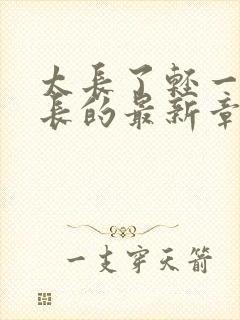 太长了轻一
长的最新章
一支穿天箭